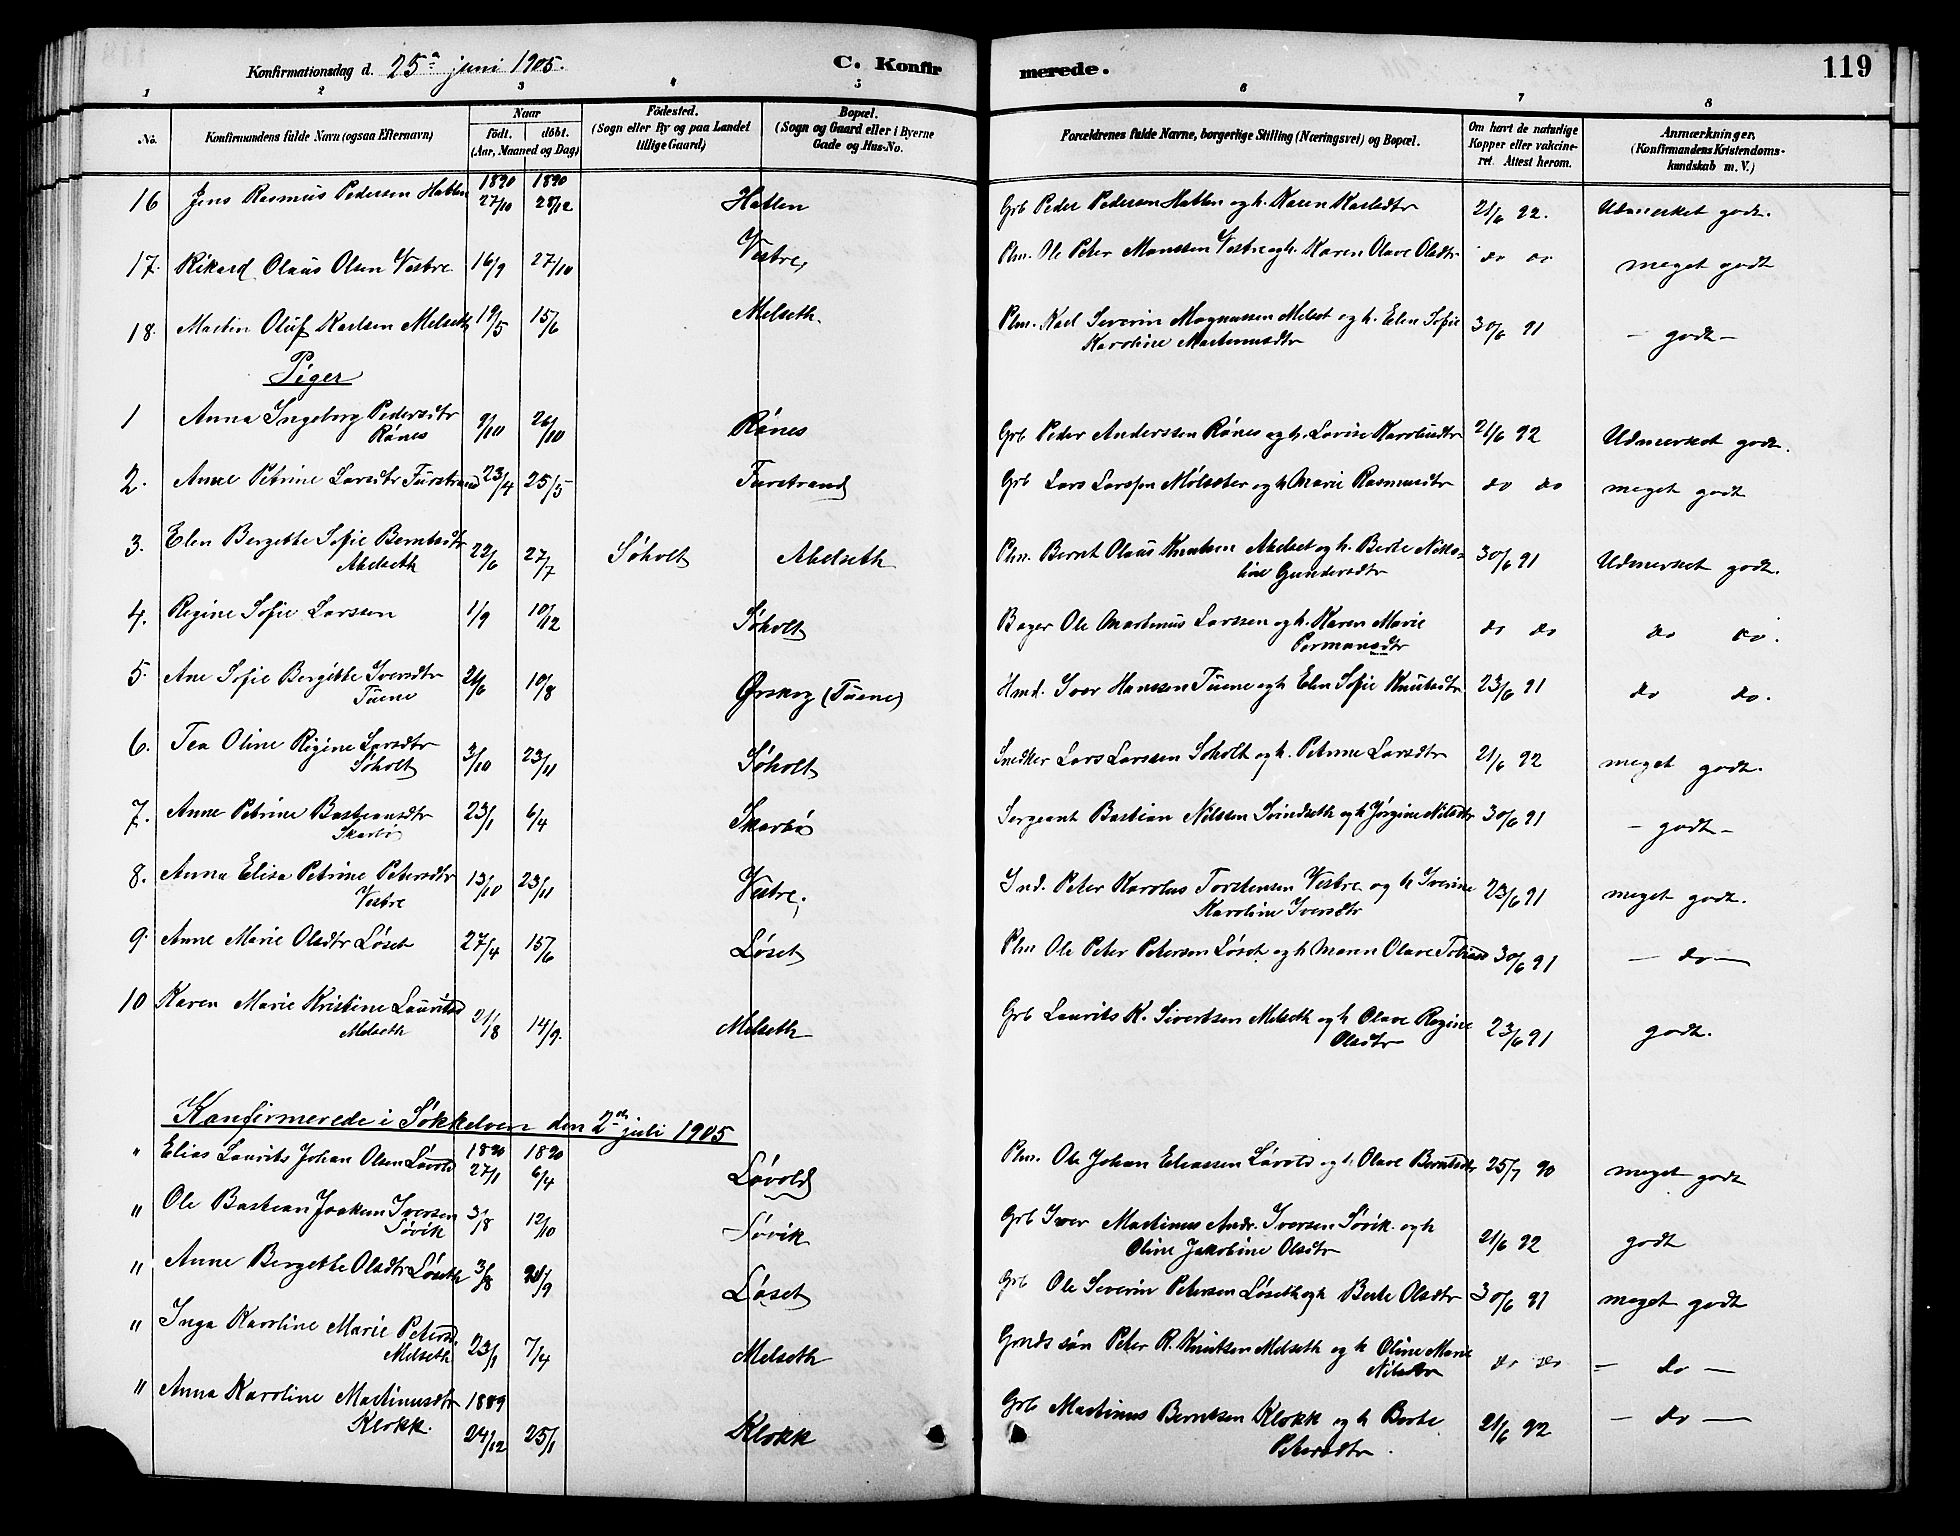 Konfirmationsdag d. 25de juni 1905. C. Konfir merede. 119
1 2 3 4 5 6 7 8
No. Konfirmandens fulde Navn (ogsaa Efternavn) Naar födt. döbt. (Aar, Maaned og Dag) Födested. (Sogn eller By og paa Landet tillige Gaard) Bopæl. (Sogn og Gaard eller i Byerne Gade og Hus-No. Forældrenes fulde Navne, borgerlige Stilling (Næringsvei) og Bopæl. Om havt de naturlige Kopper eller vakcineret. Attest herom. Anmærkninger. (Konfirmandens Kristendomskundskab m. V.)
16 Jens Rasmus Pedersen Hatlen 1890 27/10 1890 28/12 Hatlen Grb Peder Pedersen Hatlen og h. Karen Karlsdtr 21/6 92. Udmerket godt.
17. Rikard Olaus Olsen Vestre 16/9 27/10 Vestre, Plm. Ole Peter Monssen Vestre og h. Karen Olave Olsdtr do do meget godt
18. Martin Oluf Karlsen Melseth 19/5 15/6 Melseth. Plm. Karl Severin Magnussen Melset og h. Elen Sofie
Karoline Martinusdtr 30/6 91 - godt -
Piger
1 Anna Ingeborg Pedersdtr
Rönes 9/10 26/10 Rönes Grb Peder Anderssen Rönes og h. Lovise Karolusdtr 21/6 92 Udmerket godt.
2. Anne Petrine Larsdtr Furstrand 23/4 25/5 Furstrand Grb Lars Larssen Mölsæter og h Marie Rasmusdtr do do meget godt
3. Elen Bergitte Sofie Berntsdtr
Abelseth 22/6 27/7 Søholt Abelseth Plm. Bernt Olaus Knutsen Abelset og h. Berte Niko-
line Gundersdtr 30/6 91 Udmerket godt.
4. Regine Sofie Larssen 1/9 10/12 Søholt Bager Ole Martinus Larssen og h. Karen Marie
Permansdtr do do do do.
5. Ane Sofie Bergitte Iversdtr
Tuene 24/6 10/8 Ørskog (Tuene) Hmd. Iver Hanssen Tuene og h Elen Sofie Knutsdtr 23/6 91 do do.
6. Tea Oline Regine Larsdtr
Søholt 3/10 23/11 Søholt Snedker Lars Larssen Søholt og h. Petrine Larsdtr 21/6 92 meget godt.
7. Anne Petrine Bastiansdtr
Skarbö 23/1 6/4 Skarbö Sergeant Bastian Nilssen Svindseth og h Jörgine Nilsdtr 30/6 91 - godt -
8. Anna Elisa Petrine Petersdtr
Vestre 13/10 23/11 Vestre. Ind. Peter Karolus Torstensen Vestre og h Iverine
Karoline Iversdtr 23/6 91 meget godt.
9. Anne Marie Olsdtr Løset 27/4 15/6 Løset Plm Ole Peter Petersen Løset og h Maren Olave Tobiasd 30/6 91 - do -
10 Karen Marie Kristine Lauritsd
Melseth 21/8 14/9. Melseth Grb Laurits K. Sivertsen Melseth og h Olave Regine
Olsdtr 23/6 91 godt.
Konfirmerede i Søkkelven den 2den juli 1905
" Elias Laurits Johan Olsen Lövold 1890 27/1 1890 6/4 Lövold Plm. Ole Johan Eliassen Lövold og h Olave Berntsdtr 25/7 90 meget godt
" Ole Bastian Joakim Iversen
Søvik 3/8 12/10 Søvik Grb Iver Martinus Andr. Iversen Søvik og h
Oline Jakobine Olsdtr 21/6 92 godt
" Anne Bergitte Olsdtr Løseth 3/8 21/9 Løset Grb Ole Severin Petersen Løseth og h Berte Olsdtr 30/6 91 meget godt
" Inga Karoline Marie Petersd
Melseth 23/1 7/4 Melseth Grnds søn Peter R. Knutsen Melseth og h Oline Marie
Nilsdtr do do - do -
" Anna Karoline Martinusdtr
Klokk. 1889 24/12 25/1 Klokk Grb Martinus Berntsen Klokk og h Berte
Petersdtr. 21/6 92 - do -